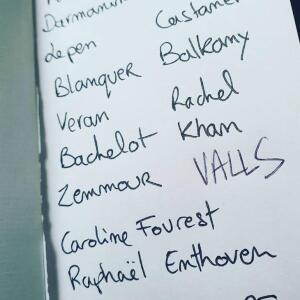 Darmanin
Castaner
Lepen
Balkany
Blanquer
Rachel
Khan
Veran
Bachelot
Zemmour
VALLS
Caroline Fourest
Raphaël Enthoven